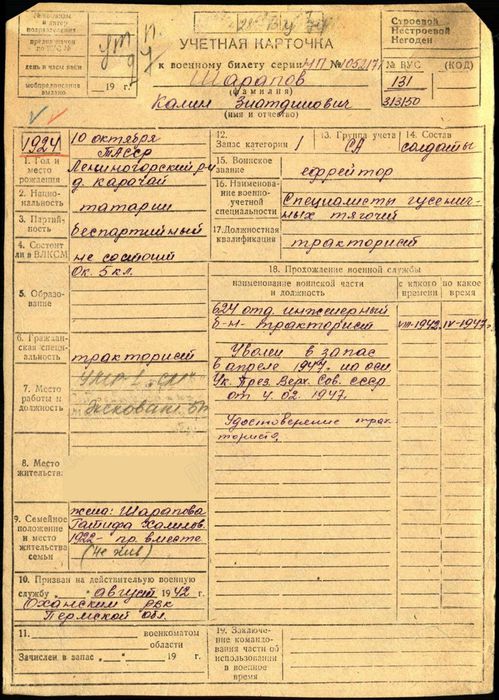 УЧЕТНАЯ КАРТОЧКА
к военному билету серии НП № 1052171
Шарапов
(фамилия)
Калим Зиатдинович
(имя и отчество)
Строевой
Нестроевой
Негоден
№ ВУС (КОД)
131
313150
день и часы явки
мобпредписания
выдано 19 г.
1924 10 октября
ТАССР
1. Год и
место
рождения
Лениногорский р-н
д. Карачай
2. Нацио-
нальность
татарин
3. Партий-
ность
беспартийный
4. Состоит
ли в ВЛКСМ
не состоит
5. Образо-
вание
Ок. 5 кл.
6. Гражданская
специ-
альность
тракторист
7. Место
работы и
должность
8. Место
жительства:
9. Семейное
положение
и место
жительства
семьи
жена: Шарапова
1922 - пр. вместе
(не жив)
10. Призван на действительную военную
службу август 1942 г.
Оханским рвк
Пермской обл.
11. военкоматом
области
Зачислен в запас „ “ 19 г.
12.
Запас категории 1
13. Группа учета
СА
14. Состав
солдаты
15. Воинское
звание
ефрейтор
16. Наименование
военно-
учетной
специальности
Специалисты гусенич-
ных тягачей
17. Должностная
квалификация
тракторист
18. Прохождение военной службы
наименование воинской части
и должность
с какого
времени
по какое
время
624 отд. инженерный
б-н - тракторист VIII-1942 IV-1947г.
Уволен в запас
в апреле 1947г. на осн.
Ук. През. Верх. Сов. СССР
от 4.02.1947.
Удостоверение трак-
ториста
19. Заключение
командова-
ния части об
использовании
в военное
время